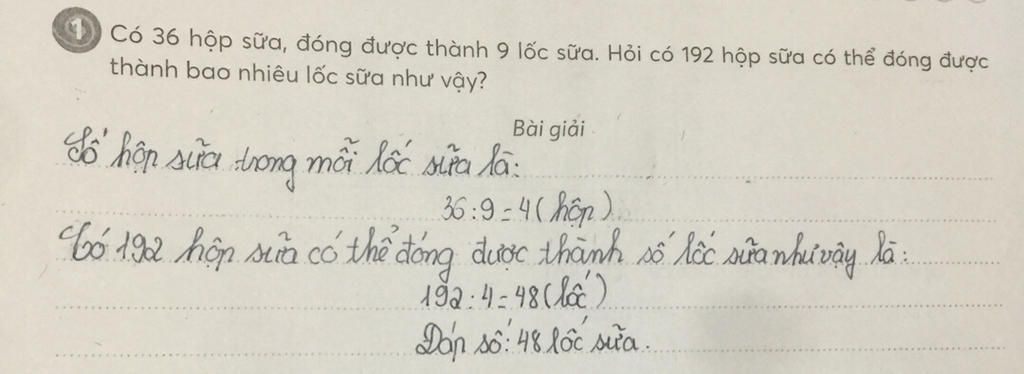 1 Có 36 hộp sữa, đóng được thành 9 lốc sữa. Hỏi có 192 hộp sữa có thể đóng được
thành bao nhiêu lốc sữa như vậy?
Bài giải
Số hộp sữa trong mỗi lốc sữa là:
36 : 9 = 4 (hộp)
Có 192 hộp sữa có thể đóng được thành số lốc sữa như vậy là:
192 : 4 = 48 (lốc)
Đáp số: 48 lốc sữa.